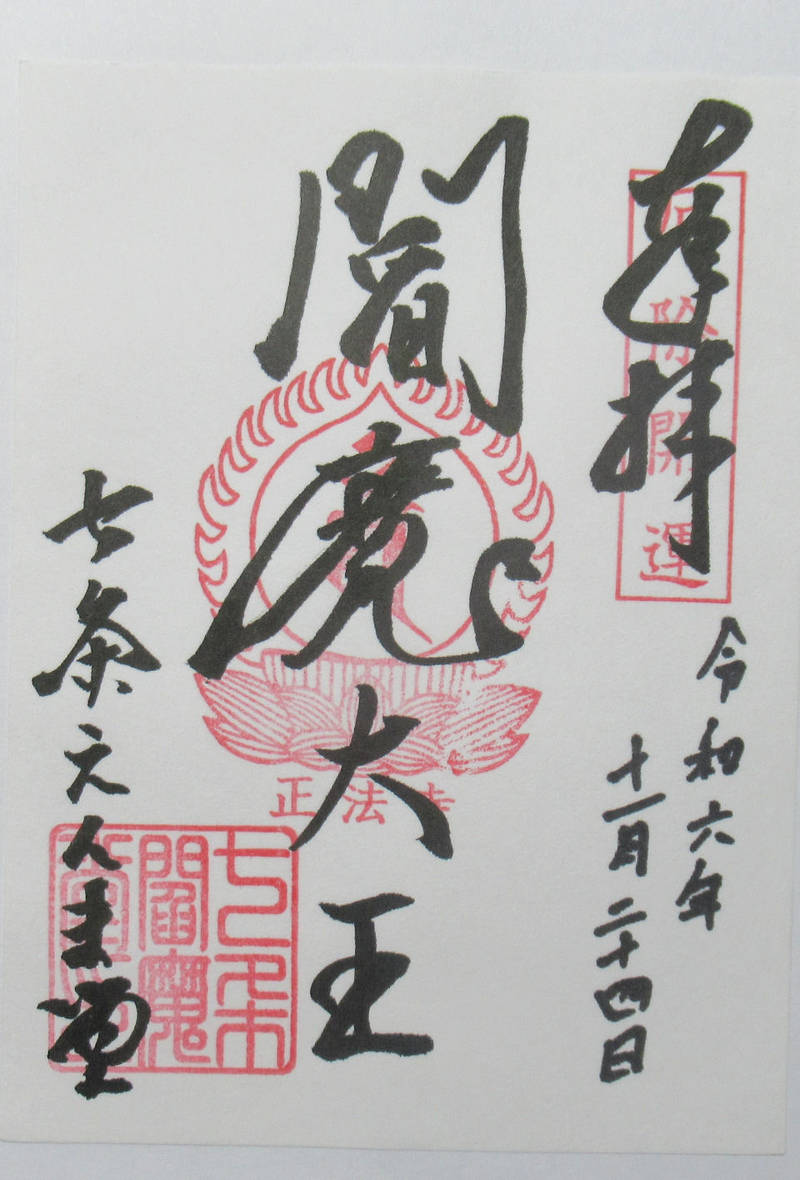 奉拝
厄除開運
令和六年
十一月二十四日
閻魔大王
正法寺
七条えんま堂
七条
閻魔